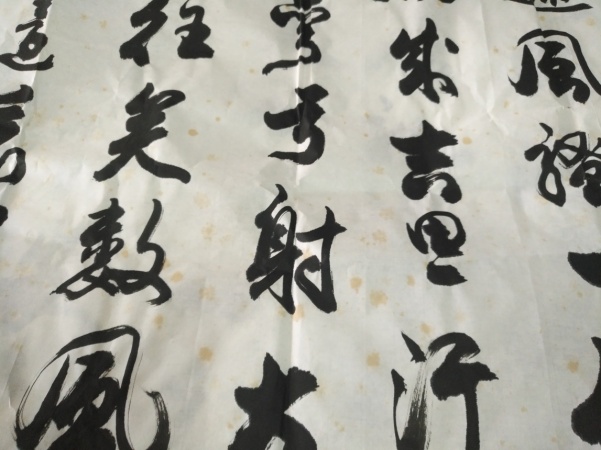 遜風騷一
成吉思汗
彎弓射大
往矣數風
還